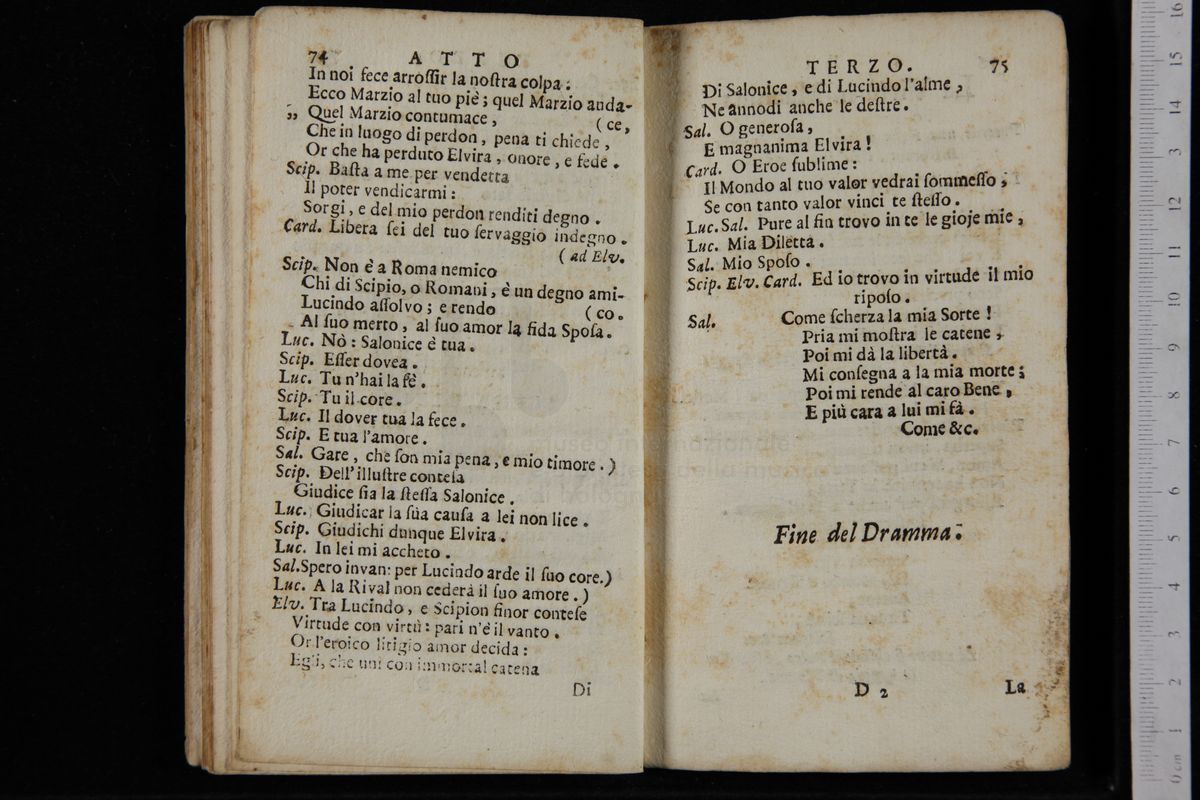 74 ATTO
In noi fece arroſſir la noſtra colpa:
Ecco Marzio al tuo piè; quel Marzio auda-
„ Quel Marzio contumace, (ce,
Che in luogo di perdon, pena ti chiede,
Or che ha perduto Elvira, onore, e fede.
Scip. Baſta a me per vendetta
Il poter vendicarmi:
Sorgi, e del mio perdon renditi degno.
Card. Libera ſei del tuo ſervaggio indegno.
(ad Elv.
Scip. Non è a Roma nemico
Chi di Scipio, o Romani, è un degno ami-
Lucindo aſſolvo; e rendo (co.
Al ſuo merto, al ſuo amor la fida Spoſa.
Luc. Nò: Salonice è tua.
Scip. Eſſer dovea.
Luc. Tu n'hai la fè.
Scip. Tu il core.
Luc. Il dover tua la fece.
Scip. E tua l'amore.
Sal. Gare, che ſon mia pena, e mio timore.)
Scip. Dell'illuſtre conteſa
Giudice ſia la ſteſſa Salonice.
Luc. Giudicar la ſua cauſa a lei non lice.
Scip. Giudichi dunque Elvira.
Luc. In lei mi accheto.
Sal. Spero invan: per Lucindo arde il ſuo core.)
Luc. A la Rival non cederà il ſuo amore.)
Elv. Tra Lucindo, e Scipion finor conteſe
Virtude con virtù: pari n'è il vanto.
Or l'eroico litigio amor decida:
Egli, che unì con immortal catena
Di
TERZO. 75
Di Salonice, e di Lucindo l'alme,
Ne annodi anche le deſtre.
Sal. O generoſa,
E magnanima Elvira!
Card. O Eroe ſublime:
Il Mondo al tuo valor vedrai ſommeſſo,
Se con tanto valor vinci te ſteſſo.
Luc. Sal. Pure al fin trovo in te le gioje mie,
Luc. Mia Diletta.
Sal. Mio Spoſo.
Scip. Elv. Card. Ed io trovo in virtude il mio
ripoſo.
Sal. Come ſcherza la mia Sorte!
Pria mi moſtra le catene,
Poi mi dà la libertà.
Mi conſegna a la mia morte;
Poi mi rende al caro Bene,
E più cara a lui mi fà.
Come &c.
Fine del Dramma.
D 2 La